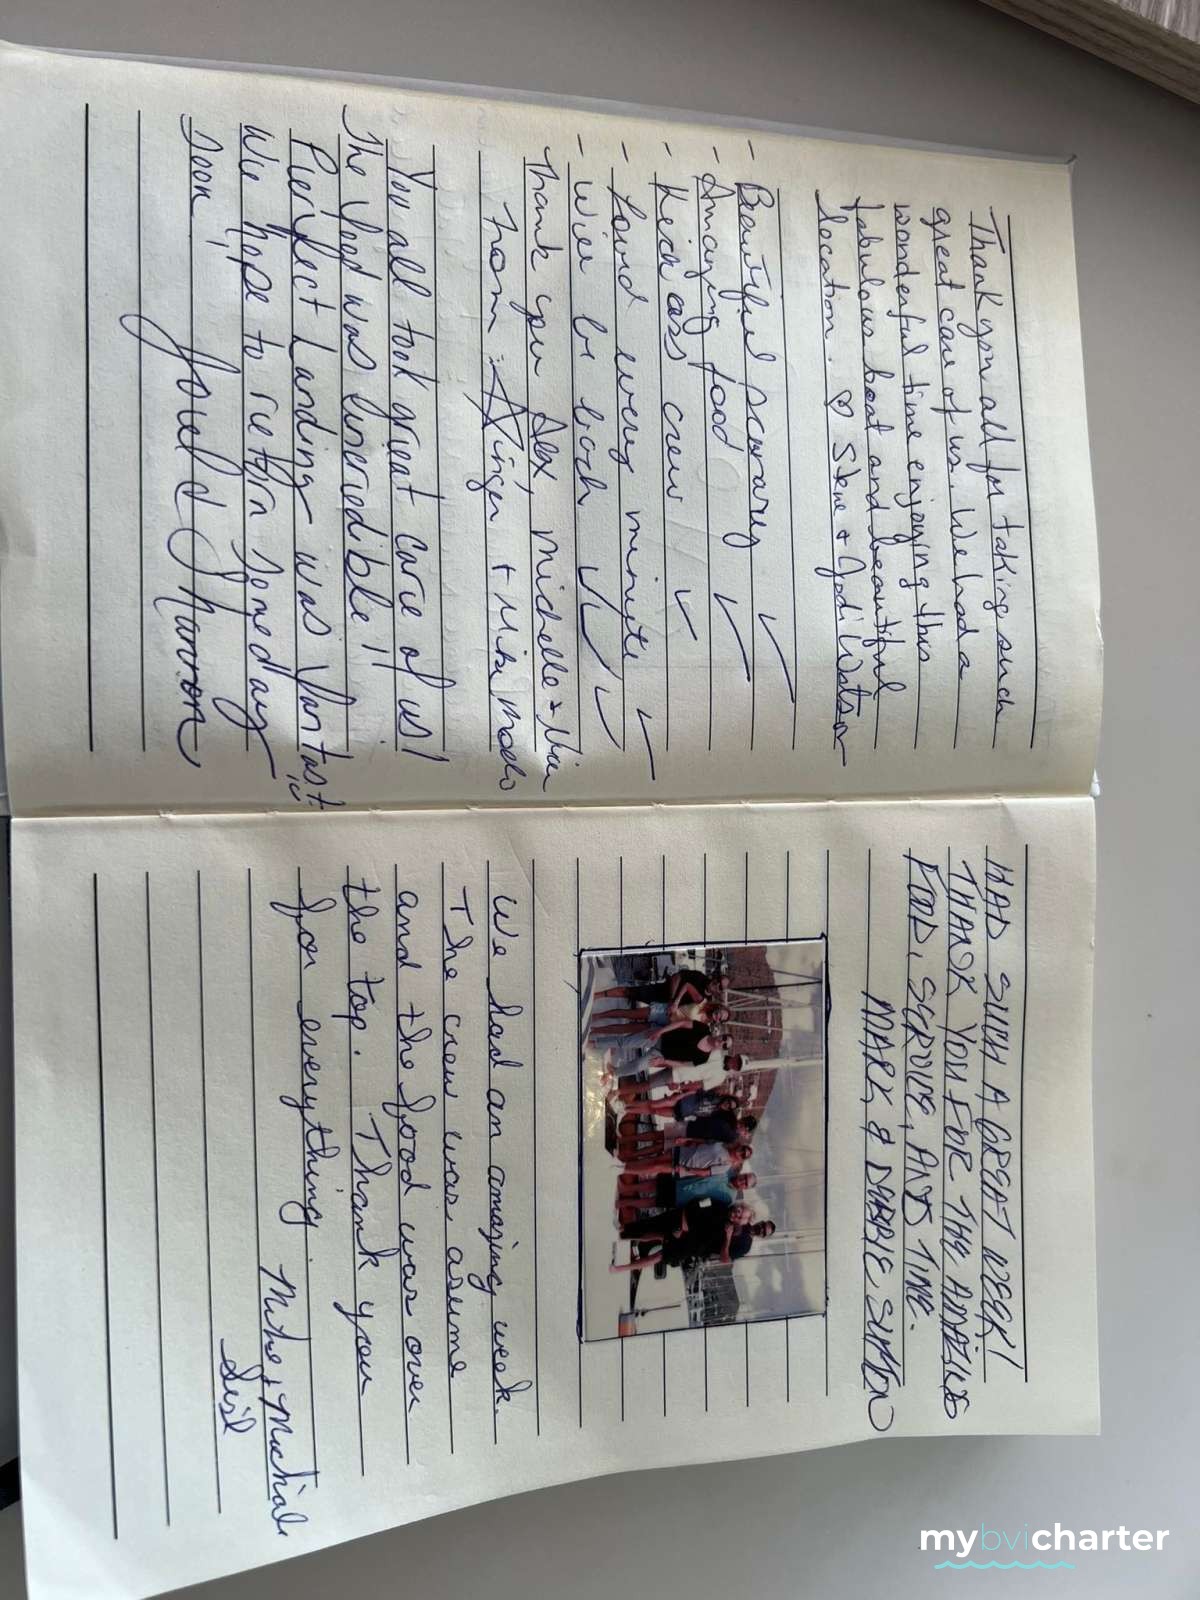 Thank you all for taking such
great care of us. We had a
wonderful time enjoying this
fabulous boat and beautiful
location. ♡ Steve + Jodi Watson
- Beautiful
- Amazing food ✓
- Kick ass crew ✓
- Loved every minute ✓
- Will be back ✓✓✓
Thank you Alex, Michelle +
from Ginger + Mike
You all took great care of us!
The food was incredible!!
Perfect Landing was Fantast
We hope to return someday
soon!
Jouel & Sharron
HAD SUCH A GREAT WEEK!
THANK YOU FOR THE AMAZING
FOOD, SERVICE, AND TIME.
MARK & DEBBIE SUTTON
We had an amazing week.
The crew was
and the food was over
the top. Thank you
for everything.
Mike +
mybvicharter